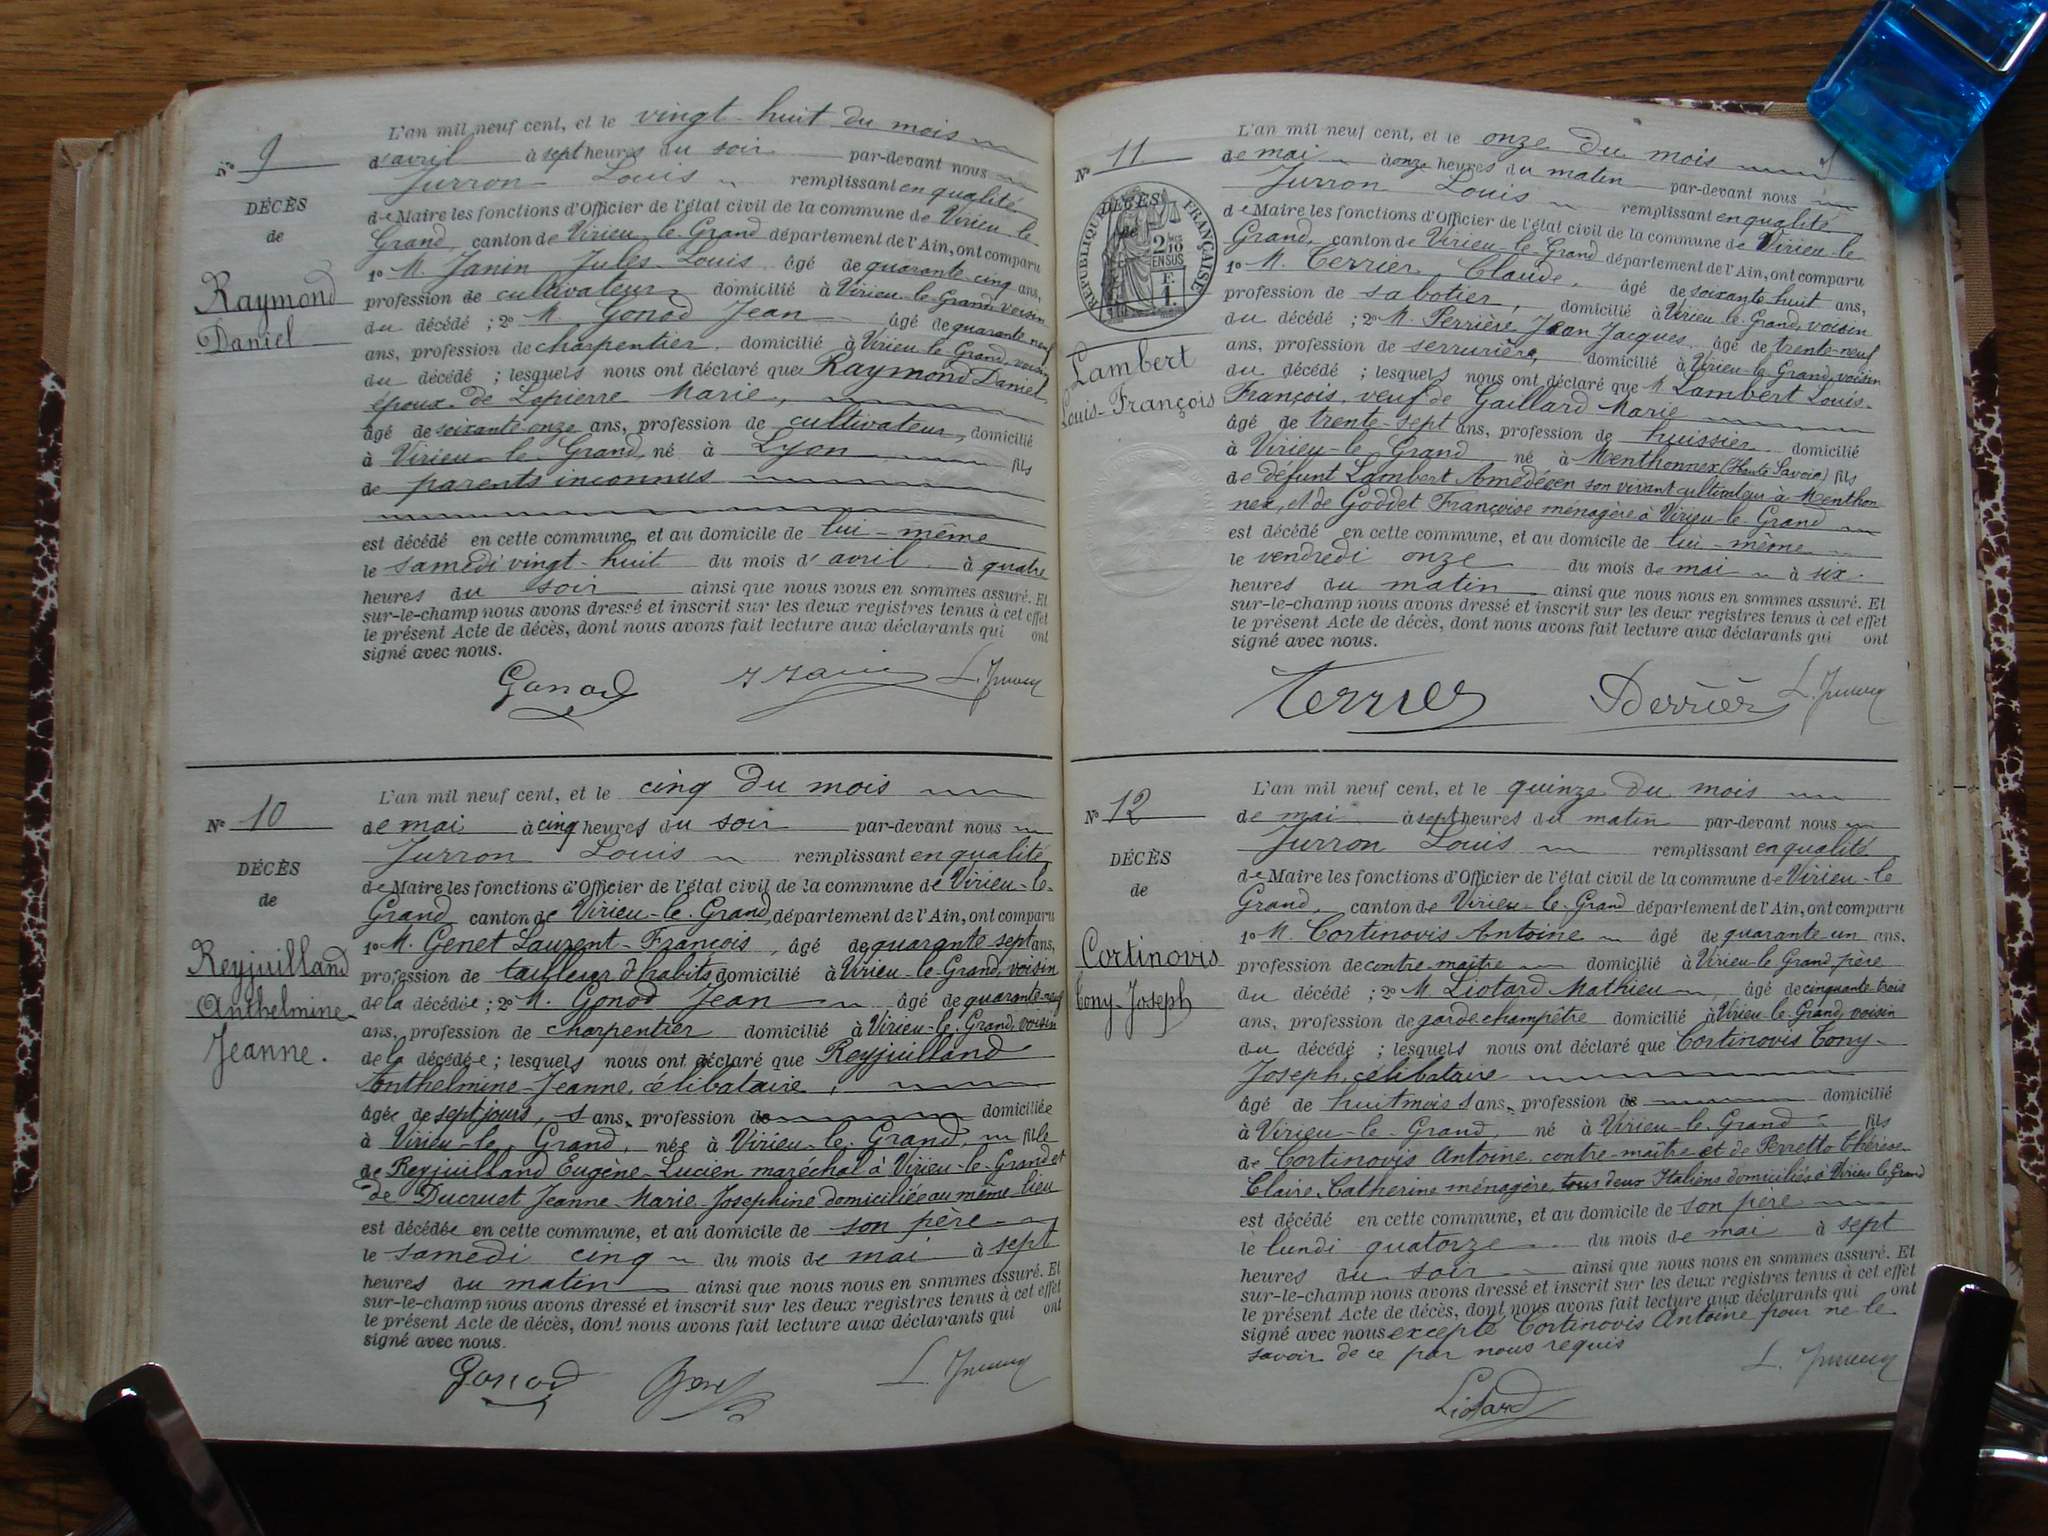 Nº 9
DÉCÈS
de
Raymond
Daniel
L'an mil neuf cent, et le vingt-huit du mois
d'avril à sept heures du soir par-devant nous
Jurron Louis remplissant en qualité
de Maire les fonctions d'Officier de l'état civil de la commune de Virieu-le-
Grand, canton de Virieu-le-Grand département de l'Ain, ont comparu
1º M. Janin Jules Louis âgé de quarante-cinq ans,
profession de cultivateur domicilié à Virieu-le-Grand, voisin
du décédé ; 2º M. Gonod Jean âgé de quarante-neuf
ans, profession de charpentier, domicilié à Virieu-le-Grand, voisin
du décédé ; lesquels nous ont déclaré que Raymond Daniel
époux de Lapierre Marie,
âgé de soixante-onze ans, profession de cultivateur, domicilié
à Virieu-le-Grand, né à Lyon fils
de parents inconnus
est décédé en cette commune, et au domicile de lui-même
le samedi vingt-huit du mois d'avril à quatre
heures du soir ainsi que nous nous en sommes assuré. Et
sur-le-champ nous avons dressé et inscrit sur les deux registres tenus à cet effet
le présent Acte de décès, dont nous avons fait lecture aux déclarants qui ont
signé avec nous.
Gonod J Janin L. Jurron
Nº 10
DÉCÈS
de
Reyjuilland
Anthelmine-
Jeanne.
L'an mil neuf cent, et le cinq du mois
de mai à cinq heures du soir par-devant nous
Jurron Louis remplissant en qualité
de Maire les fonctions d'Officier de l'état civil de la commune de Virieu-le-
Grand, canton de Virieu-le-Grand, département de l'Ain, ont comparu
1º M. Genet Laurent-François, âgé de quarante sept ans,
profession de tailleur d'habits domicilié à Virieu-le-Grand, voisin
de la décédée ; 2º M. Gonod Jean âgé de quarante-neuf
ans, profession de charpentier domicilié à Virieu-le-Grand, voisin
de la décédée ; lesquels nous ont déclaré que Reyjuilland
Anthelmine-Jeanne, célibataire,
âgée de sept jours, s ans, profession de domiciliée
à Virieu-le-Grand, née à Virieu-le-Grand, fille
de Reyjuilland Eugène-Lucien, maréchal à Virieu-le-Grand et
de Ducruet Jeanne-Marie-Josephine domiciliée au même lieu
est décédée en cette commune, et au domicile de son père
le samedi cinq du mois de mai à sept
heures du matin ainsi que nous nous en sommes assuré. Et
sur-le-champ nous avons dressé et inscrit sur les deux registres tenus à cet effet
le présent Acte de décès, dont nous avons fait lecture aux déclarants qui ont
signé avec nous.
Gonod Genet L. Jurron
Nº 11
DÉCÈS
RÉPUBLIQUE FRANÇAISE
2 DMES
10
EN SUS
F.
1.
Lambert
Louis-François
L'an mil neuf cent, et le onze du mois
de mai à onze heures du matin par-devant nous
Jurron Louis remplissant en qualité
de Maire les fonctions d'Officier de l'état civil de la commune de Virieu-le-
Grand, canton de Virieu-le-Grand département de l'Ain, ont comparu
1º M. Terrier Claude, âgé de soixante-huit ans,
profession de sabotier, domicilié à Virieu-le-Grand, voisin
du décédé ; 2º M. Perrière Jean Jacques, âgé de trente-neuf
ans, profession de serrurière, domicilié à Virieu-le-Grand, voisin
du décédé ; lesquels nous ont déclaré que M. Lambert Louis-
François, veuf de Gaillard Marie
âgé de trente-sept ans, profession de huissier domicilié
à Virieu-le-Grand né à Menthonnex (Haute Savoie) fils
de défunt Lambert Amédée en son vivant cultivateur à Menthon
nex, et de Goddet Françoise ménagère à Virieu-le-Grand
est décédé en cette commune, et au domicile de lui-même
le vendredi onze du mois de mai à six
heures du matin ainsi que nous nous en sommes assuré. Et
sur-le-champ nous avons dressé et inscrit sur les deux registres tenus à cet effet
le présent Acte de décès, dont nous avons fait lecture aux déclarants qui ont
signé avec nous.
Terrier Perrièr L. Jurron
Nº 12
DÉCÈS
de
Cortinovis
Tony-Joseph
L'an mil neuf cent, et le quinze du mois
de mai à sept heures du matin par-devant nous
Jurron Louis remplissant en qualité
de Maire les fonctions d'Officier de l'état civil de la commune de Virieu-le
Grand, canton de Virieu-le-Grand département de l'Ain, ont comparu
1º M. Cortinovis Antoine âgé de quarante un ans,
profession de contre-maître domicilié à Virieu-le-Grand, père
du décédé ; 2º M. Liotard Mathieu âgé de cinquante-trois
ans, profession de garde-champêtre domicilié à Virieu-le-Grand, voisin
du décédé ; lesquels nous ont déclaré que Cortinovis Tony-
Joseph, célibataire
âgé de huit mois s ans, profession de domicilié
à Virieu-le-Grand, né à Virieu-le-Grand fils
de Cortinovis Antoine, contre-maître et de Perretto Thérèse-
Claire-Catherine ménagère, tous deux Italiens domiciliés à Virieu le Grand
est décédé en cette commune, et au domicile de son père
le lundi quatorze du mois de mai à sept
heures du soir ainsi que nous nous en sommes assuré. Et
sur-le-champ nous avons dressé et inscrit sur les deux registres tenus à cet effet
le présent Acte de décès, dont nous avons fait lecture aux déclarants qui ont
signé avec nous excepté Cortinovis Antoine pour ne le
savoir de ce par nous requis
Liotard L. Jurron